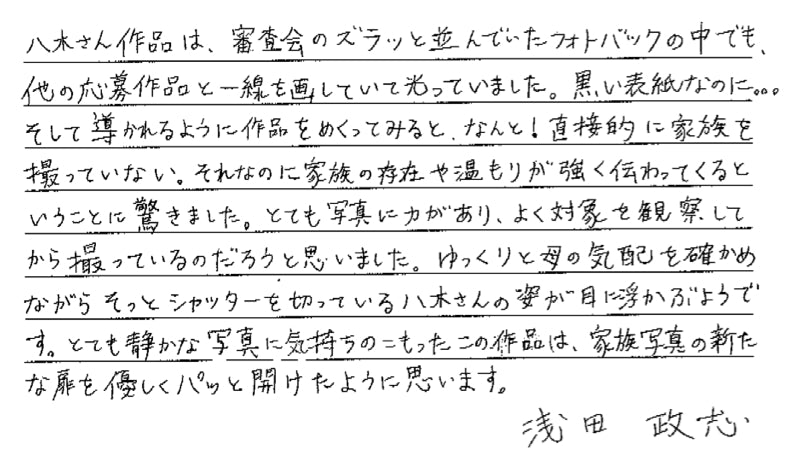 八木さん作品は、審査会のズラッと並んでいたフォトバックの中でも、
他の応募作品と一線を画していて光っていました。黒い表紙なのに...
そして導かれるように作品をめくってみると、なんと!直接的に家族を
撮っていない。それなのに家族の存在や温もりが強く伝わってくると
いうことに驚きました。とても写真に力があり、よく対象を観察して
から撮っているのだろうと思いました。ゆっくりと母の気配を確かめ
ながらそっとシャッターを切っている八木さんの姿が目に浮かぶようで
す。とても静かな写真に気持ちのこもったこの作品は、家族写真の新た
な扉を優しくパッと開けたように思います。
浅田 政志